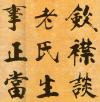 欽襟談
老氏生
事正當